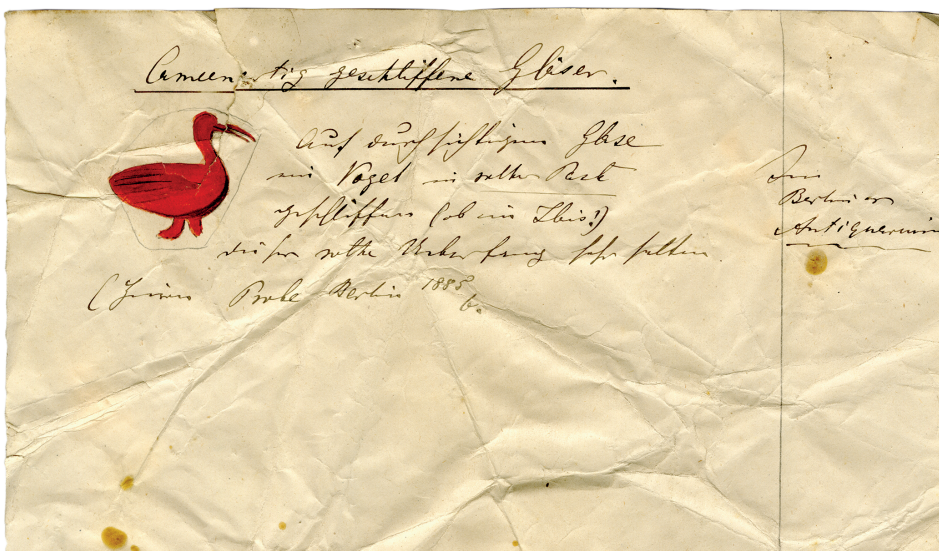 Cameenartig geschliffene Gläser.
Auf durchsichtigem Glase
ein Vogel in rother Past
geschliffen (ob ein Ibis!)
dieser rothe Ueberfang sehr selten.
Probe Berlin 1885
Im
Berliner
Antiquarium